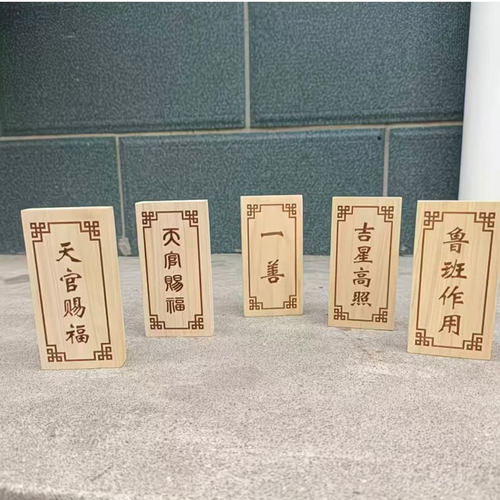 天官赐福
天官賜福
一善
吉星高照
鲁班作用